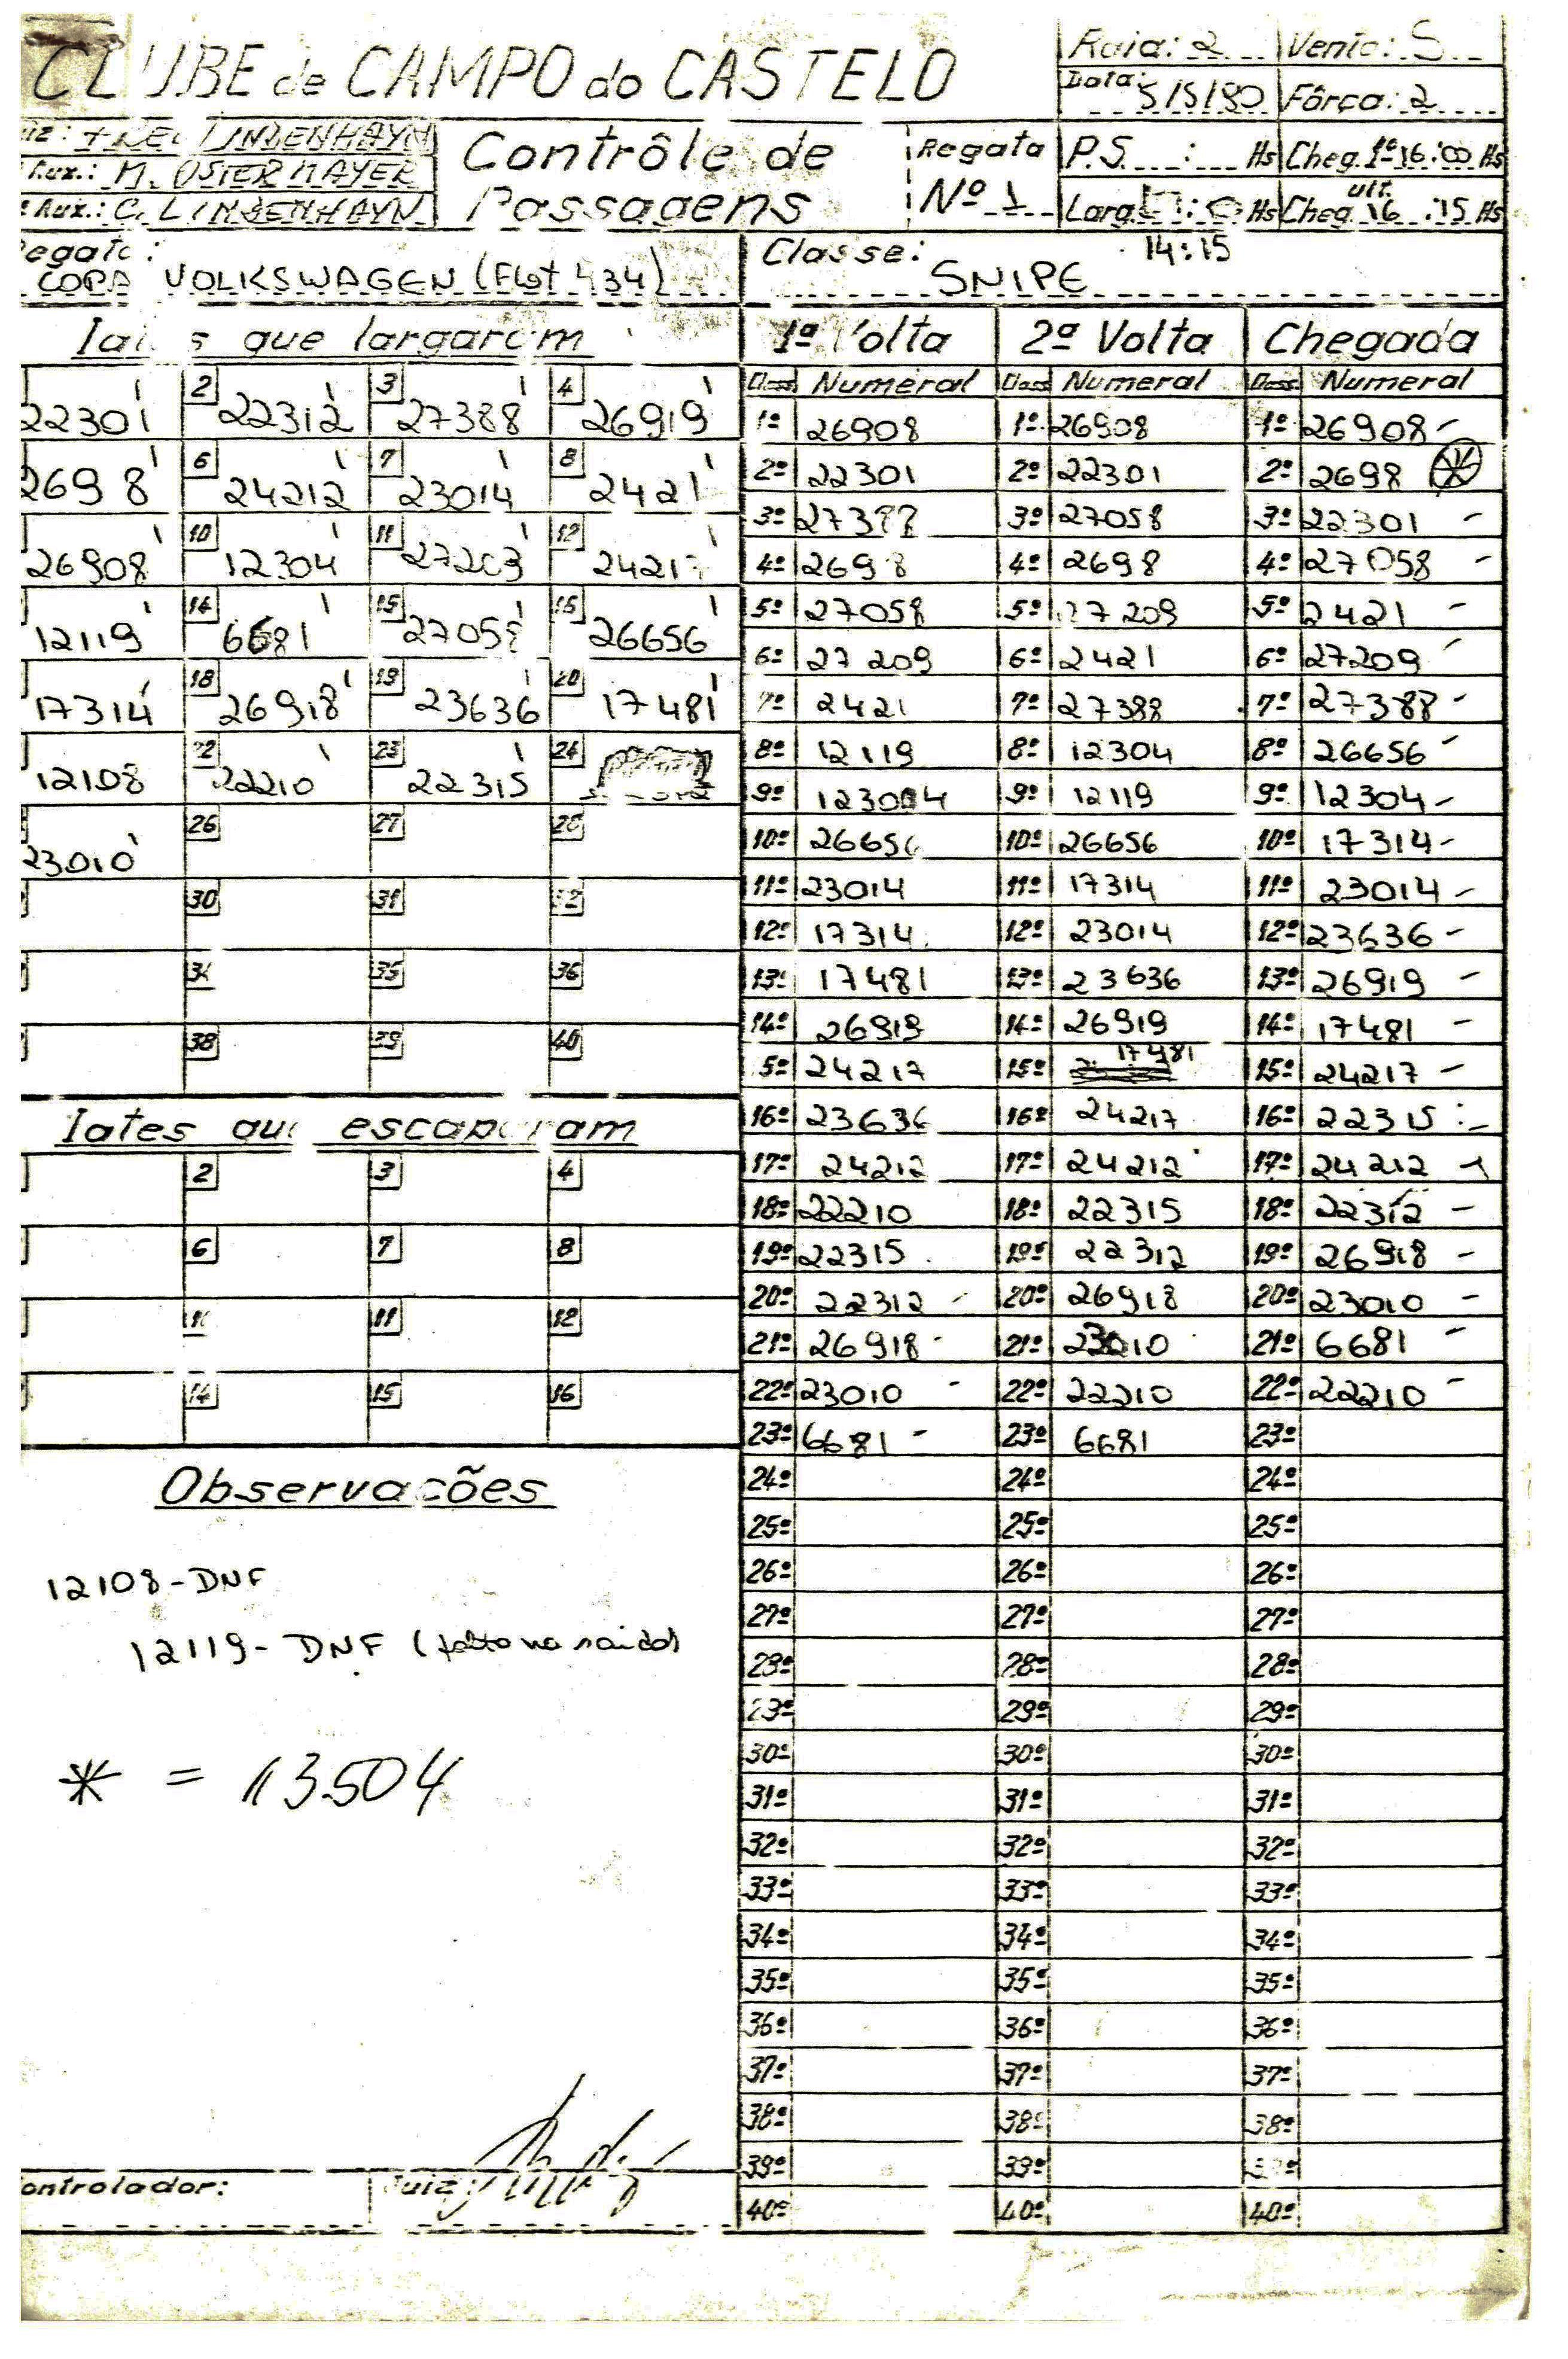 CLUBE de CAMPO do CASTELO
Raia: 2 Vento: S
Data: 5/5/80 Fôrça: 2
LINDENHAYN
Aux.: M. OSTERMAYER
Aux.: C. LINDENHAYN
Contrôle de
Passagens
Regata
Nº 1
P.S. : Hs Cheg. 1º 16:00 Hs
Larg. : Hs Cheg. ult. 16:15 Hs
14:15
Regata:
COPA VOLKSWAGEN (Flot 434)
Classe:
SNIPE
Iates que largaram
22301 2 22312 3 27388 4 26919
2698 6 24212 7 23014 8 2421
26908 10 12304 11 12 24217
12119 14 6681 15 27058 16 26656
17314 18 26918 19 23636 20 17481
12108 22 22210 23 22315 24
23010 26 27 28
30 31 32
34 35 36
38 39 40
Iates que escaparam
2 3 4
6 7 8
11 12
14 15 16
Observações
12108 - DNF
12119 - DNF (falta na saida)
* = 13504
Controlador: Juiz:
1ª Volta 2ª Volta Chegada
Class Numeral Class Numeral Class Numeral
1º 26908 1º 26908 1º 26908 -
2º 22301 2º 22301 2º 2698 *
3º 27388 3º 27058 3º 22301 -
4º 2698 4º 2698 4º 27058 -
5º 27058 5º 27209 5º 2421 -
6º 27209 6º 2421 6º 27209 -
7º 2421 7º 27388 7º 27388 -
8º 12119 8º 12304 8º 26656 -
9º 12304 9º 12119 9º 12304 -
10º 26656 10º 26656 10º 17314 -
11º 23014 11º 17314 11º 23014 -
12º 17314 12º 23014 12º 23636 -
13º 17481 13º 23636 13º 26919 -
14º 26919 14º 26919 14º 17481 -
15º 24217 15º 17481 15º 24217 -
16º 23636 16º 24217 16º 22315 -
17º 24212 17º 24212 17º 24212 -
18º 22210 18º 22315 18º 22312 -
19º 22315 19º 22312 19º 26918 -
20º 22312 - 20º 26918 20º 23010 -
21º 26918 - 21º 23010 21º 6681 -
22º 23010 - 22º 22210 22º 22210 -
23º 6681 - 23º 6681 23º
24º 24º 24º
25º 25º 25º
26º 26º 26º
27º 27º 27º
28º 28º 28º
29º 29º 29º
30º 30º 30º
31º 31º 31º
32º 32º 32º
33º 33º 33º
34º 34º 34º
35º 35º 35º
36º 36º 36º
37º 37º 37º
38º 38º 38º
39º 39º 39º
40º 40º 40º